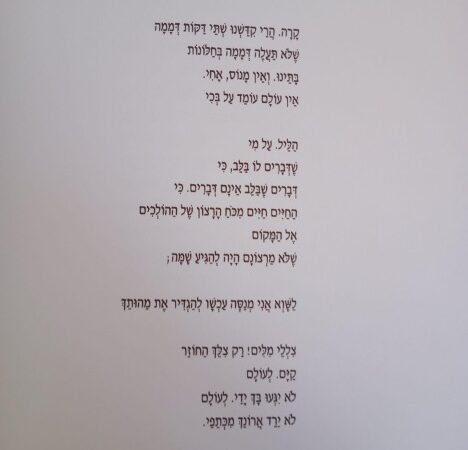 קָרָה. הֲרֵי קִדַּשְׁנוּ שְׁתֵּי דַּקּוֹת דְּמָמָה
שֶׁלֹּא תַּעֲלֶה דְּמָמָה בְּחַלּוֹנוֹת
בָּתֵּינוּ. וְאֵין מָנוֹס, אָחִי.
אֵין עוֹלָם עוֹמֵד עַל בְּכִי
הַלַּיִל. עַל מִי
שֶׁדְּבָרִים לוֹ בַּלֵּב, כִּי
דְּבָרִים שֶׁבַּלֵּב אֵינָם דְּבָרִים. כִּי
הַחַיִּים חַיִּים מִכֹּחַ הָרָצוֹן שֶׁל הַהוֹלְכִים
אֶל הַמָּקוֹם
שֶׁלֹּא מֵרְצוֹנָם הָיָה לְהַגִּיעַ שָׁמָּה;
לַשָּׁוְא אֲנִי מְנַסֶּה עַכְשָׁו לְהַגְדִּיר אֶת מַהוּתֵךְ
צִלְלֵי מִלִּים! רַק צִלֵּךְ הַחוֹזֵר
קַיָּם. לְעוֹלָם
לֹא יִגְּעוּ בָּךְ יָדַי. לְעוֹלָם
לֹא יֵרֵד אֲרוֹנֵךְ מִכְּתֵפַי.